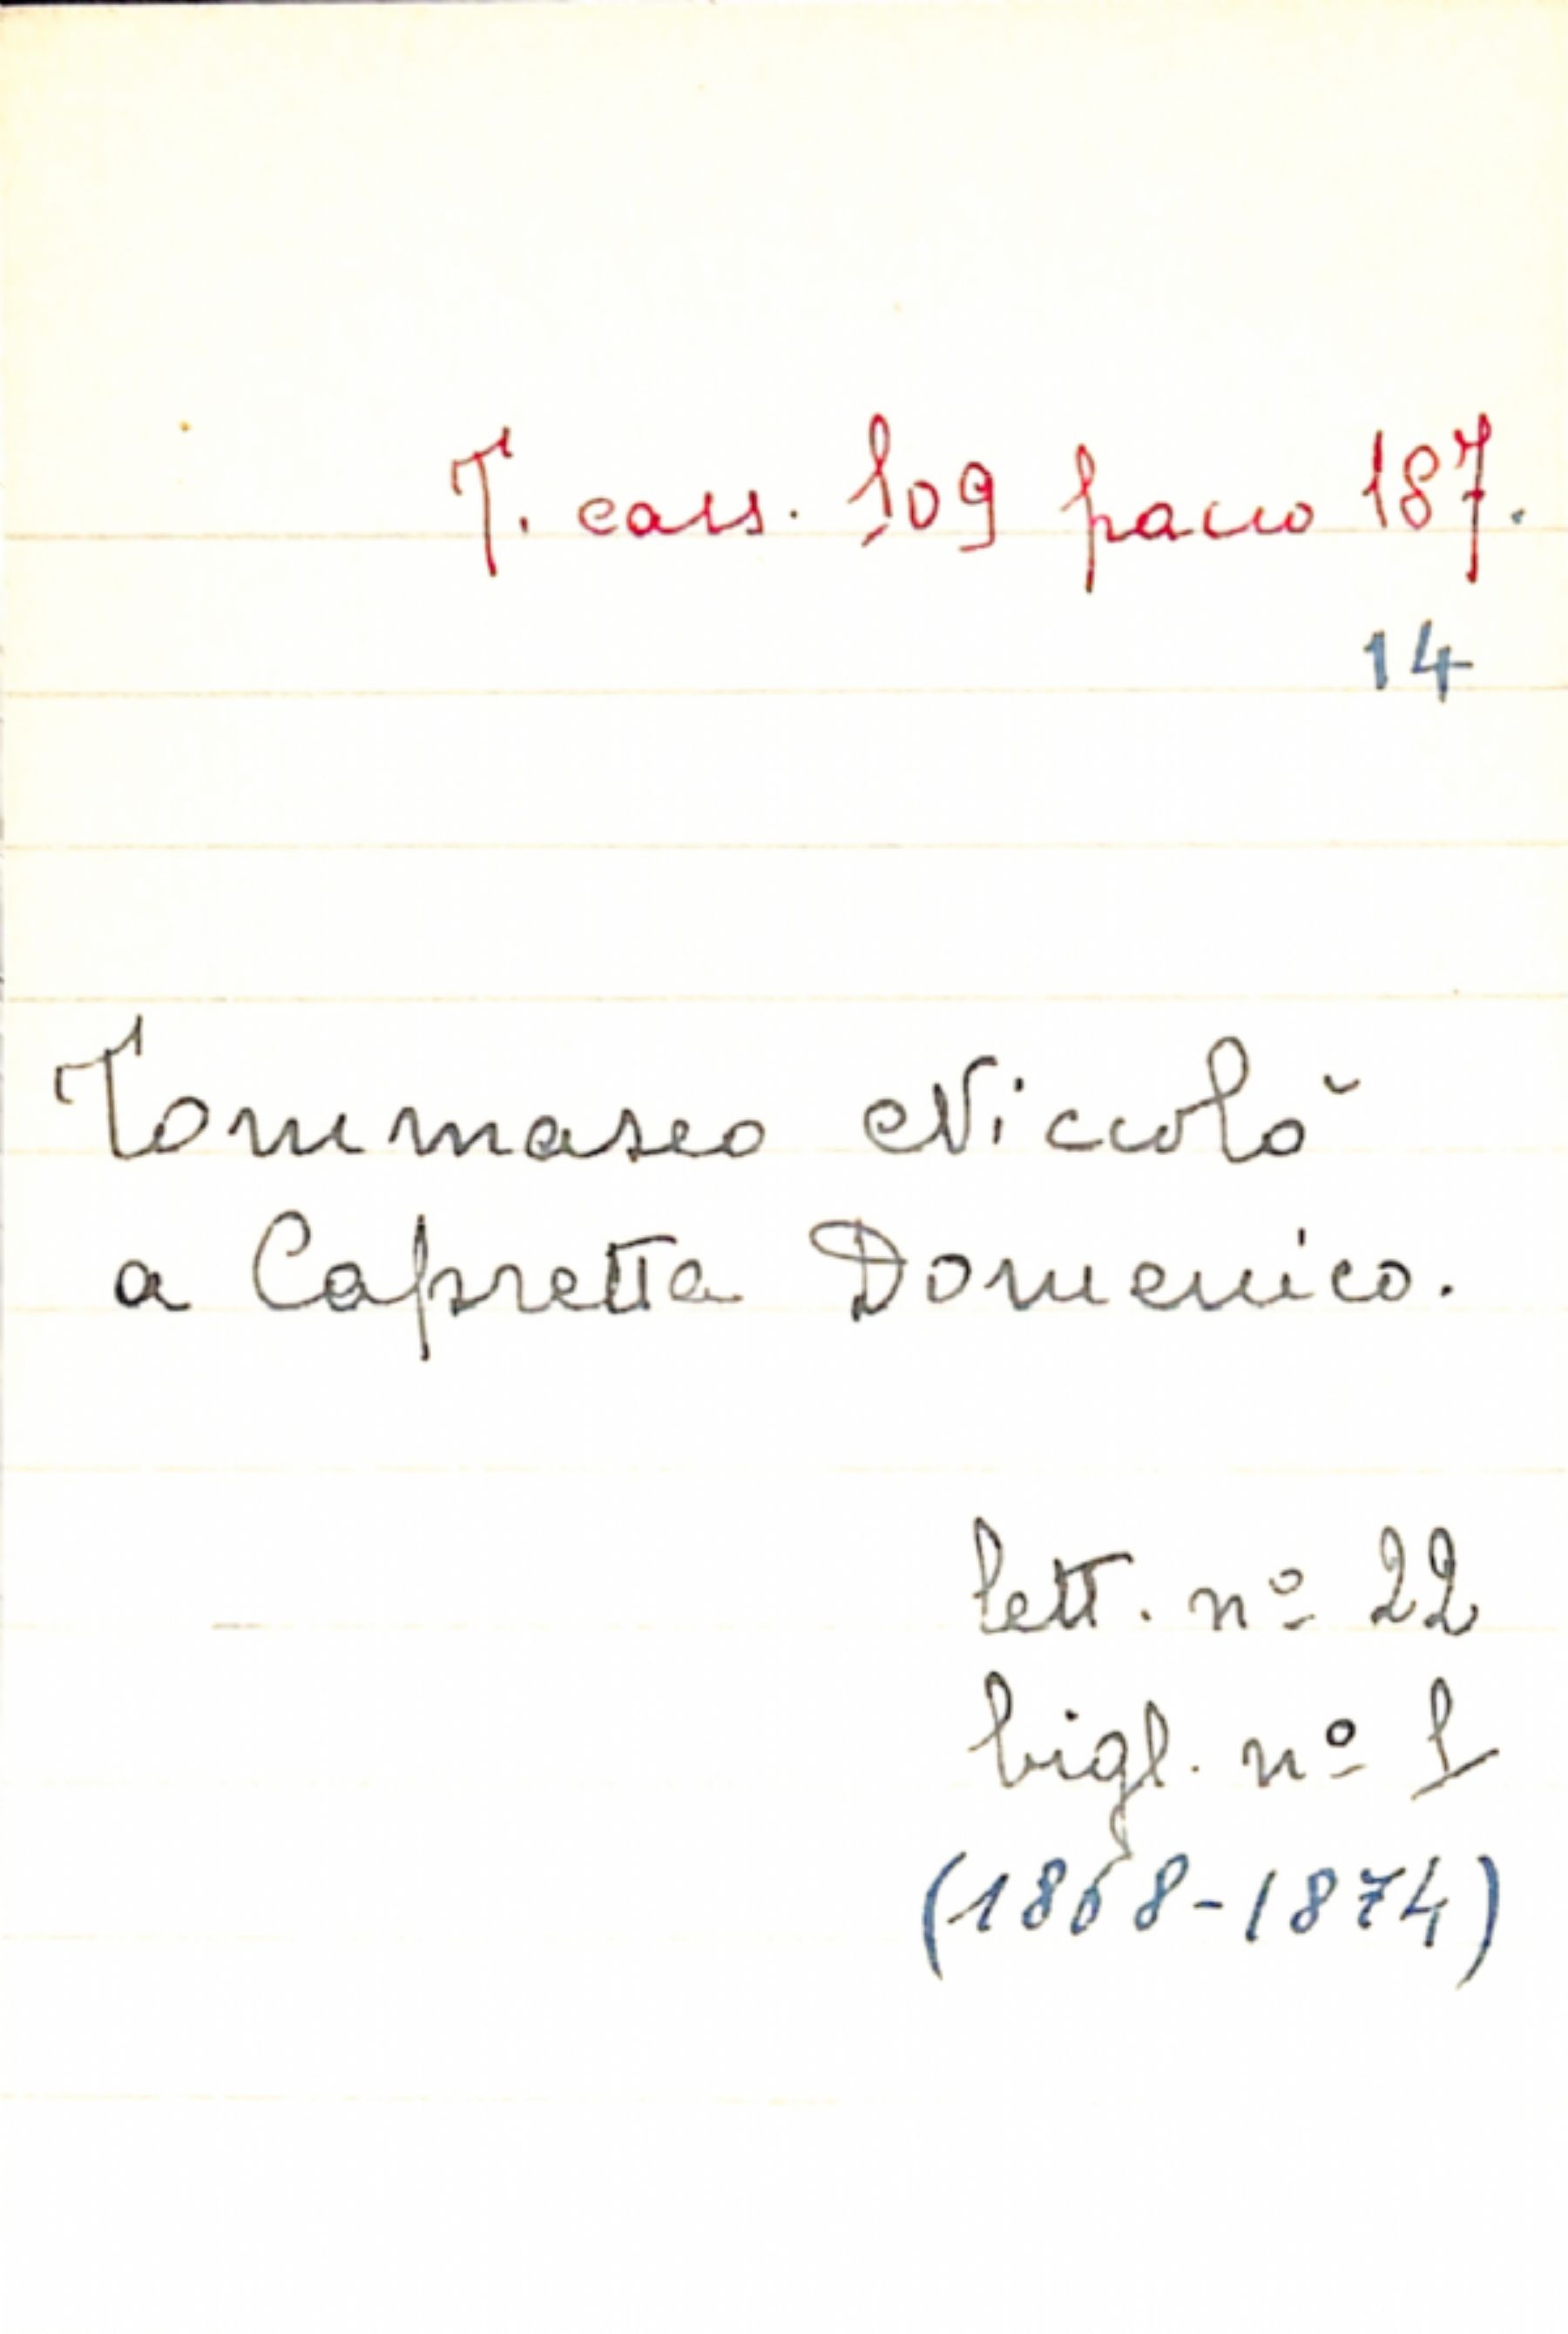 T. cass. 109 pacco 187.
14
Tommaseo Niccolò
a Capretta Domenico.
lett. nº 22
bigl. nº 1
(1868-1874)